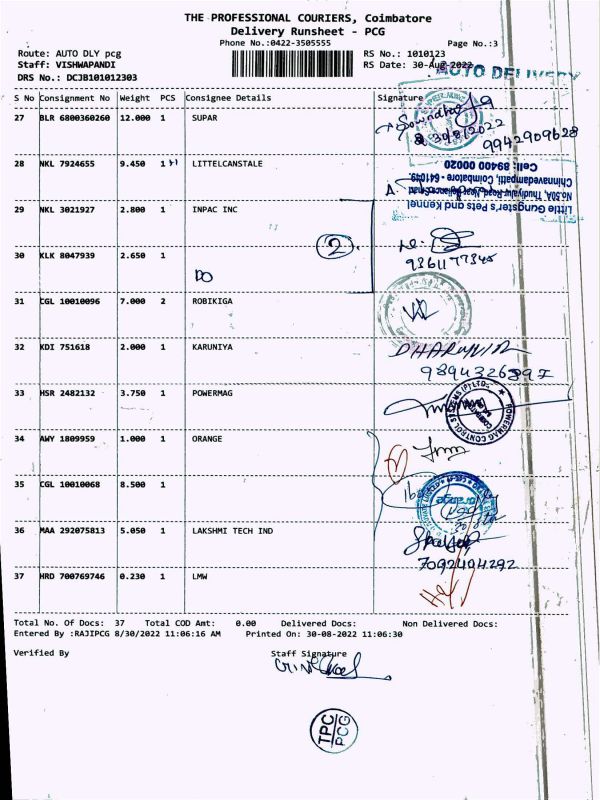 THE PROFESSIONAL COURIERS, Coimbatore
Delivery Runsheet - PCG
Phone No.:0422-3505555
Page No.:3
Route: AUTO DLY pcg
RS No.: 1010123
Staff: VISHWAPANDI
RS Date: 30-Aug-2022
DRS No.: DCJB101012303
AUTO DELIVERY
S No Consignment No Weight PCS Consignee Details Signature
27 BLR 6800360260 12.000 1 SUPAR
30/8/2022
9942909628
28 NKL 7924655 9.450 1 LITTELCANSTALE
Little Gangster's Pets and Kennel
Chinnavedampatti, Coimbatore - 641049.
Cell: 89400 00020
29 NKL 3021927 2.800 1 INPAC INC
2
30 KLK 8047939 2.650 1
DO
9361177345
31 CGL 10010096 7.000 2 ROBIKIGA
32 KDI 751618 2.000 1 KARUNIYA
33 HSR 2482132 3.750 1 POWERMAG
POWERMAG CONTROL SYSTEMS (P) LTD.
34 AWY 1809959 1.000 1 ORANGE
35 CGL 10010068 8.500 1
36 MAA 292075813 5.050 1 LAKSHMI TECH IND
7092404292
37 HRD 700769746 0.230 1 LMW
Total No. Of Docs: 37 Total COD Amt: 0.00 Delivered Docs: Non Delivered Docs:
Entered By :RAJIPCG 8/30/2022 11:06:16 AM Printed On: 30-08-2022 11:06:30
Verified By
Staff Signature
TPC
PCG